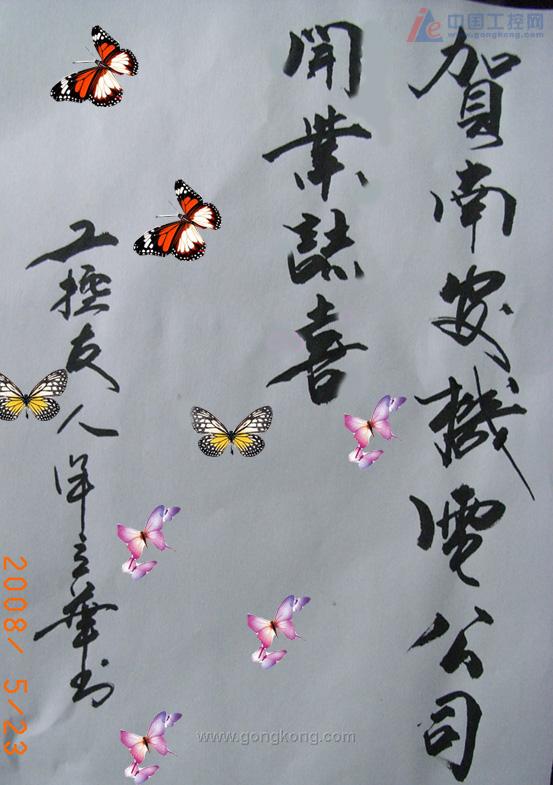 中国工控网
www.gongkong.com
賀南安機電公司
開業誌喜
工控友人華书
2008/ 5/23
www.gongkong.com